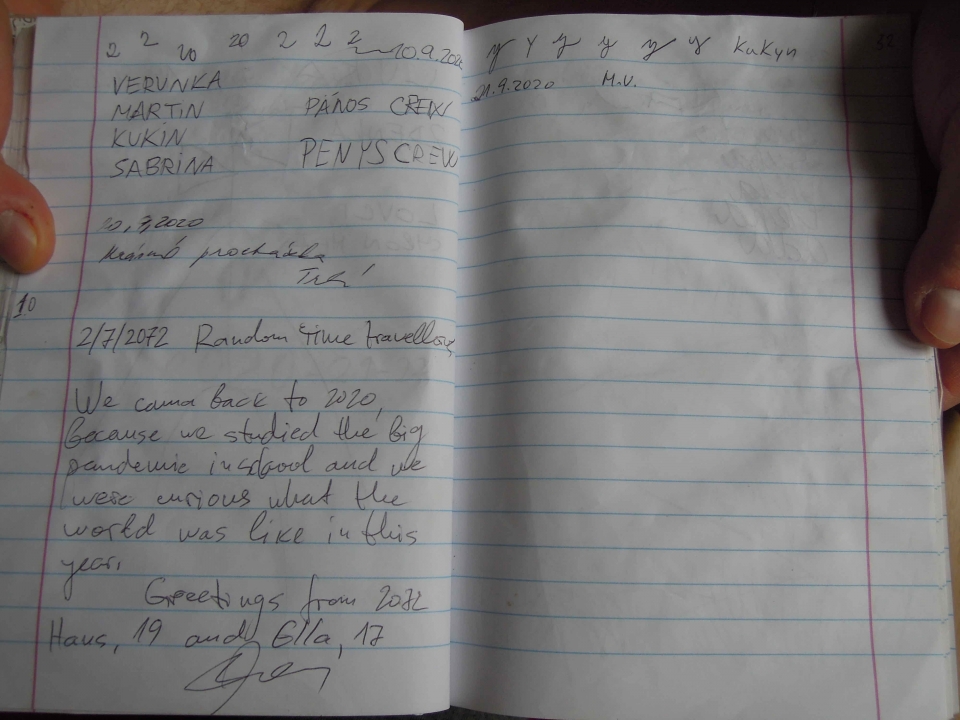 2 2 20 20 2 2 2 10.9.2020
VERUNKA
MARTIN PÁNOS CREW
KUKIN
SABRINA PENYS CREW
3.2020
procházka
10
2/7/2072 Random time travellers
We came back to 2020,
because we studied the big
pandemic in school and we
were curious what the
world was like in this
year.
Greetings from 2072
Hans, 19 and Ella, 17
y y y y y y Kukyn 32
21.9.2020 M.V.